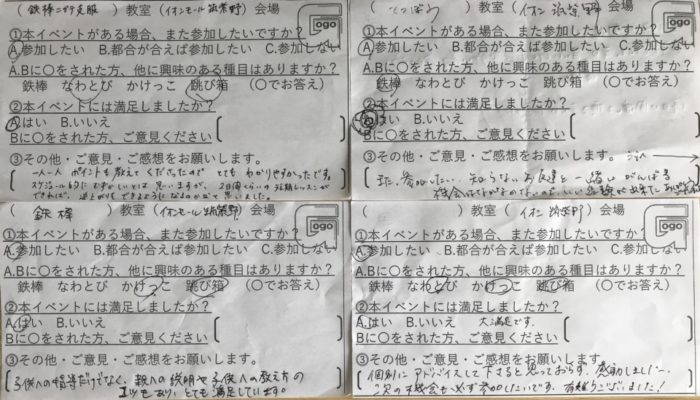 (鉄棒ニガテ克服)教室(イオンモール筑紫野)会場
①本イベントがある場合、また参加したいですか?
A.参加したい B.都合が合えば参加したい C.参加しない
A.Bに〇をされた方、他に興味のある種目はありますか?
鉄棒 なわとび かけっこ 跳び箱 (〇でお答え)
②本イベントには満足しましたか?
A.はい B.いいえ
Bに〇をされた方、ご意見ください
③その他・ご意見・ご感想をお願いします。
一人一人ポイントを教えてくださったので とても わかりやすかったです。
スケジュール的にむずかしいとは思いますが、2日間くらいの短期レッスンが
できれば、逆上がりもできるようになるのかなと思いました。
(てつぼう)教室(イオン筑紫野)会場
①本イベントがある場合、また参加したいですか?
A.参加したい B.都合が合えば参加したい C.参加しない
A.Bに〇をされた方、他に興味のある種目はありますか?
鉄棒 なわとび かけっこ 跳び箱 (〇でお答え)
②本イベントには満足しましたか?
A.はい B.いいえ
Bに〇をされた方、ご意見ください
③その他・ご意見・ご感想をお願いします。
また、参加したい。知らないお友達と一緒にがんばる
機会はなかなかないのでいい経験が出来た
(鉄棒)教室(イオンモール筑紫野)会場
①本イベントがある場合、また参加したいですか?
A.参加したい B.都合が合えば参加したい C.参加しない
A.Bに〇をされた方、他に興味のある種目はありますか?
鉄棒 なわとび かけっこ 跳び箱 (〇でお答え)
②本イベントには満足しましたか?
A.はい B.いいえ
Bに〇をされた方、ご意見ください
③その他・ご意見・ご感想をお願いします。
子供への指導だけでなく、親への説明や子供への教え方の
コツもあり、とても満足しています。
( )教室(イオン筑紫野)会場
①本イベントがある場合、また参加したいですか?
A.参加したい B.都合が合えば参加したい C.参加しない
A.Bに〇をされた方、他に興味のある種目はありますか?
鉄棒 なわとび かけっこ 跳び箱 (〇でお答え)
②本イベントには満足しましたか?
A.はい B.いいえ 大満足です。
Bに〇をされた方、ご意見ください
③その他・ご意見・ご感想をお願いします。
個別にアドバイスして下さると思っておらず、感動しました。
次の機会も必ず参加したいです。有難うございました!